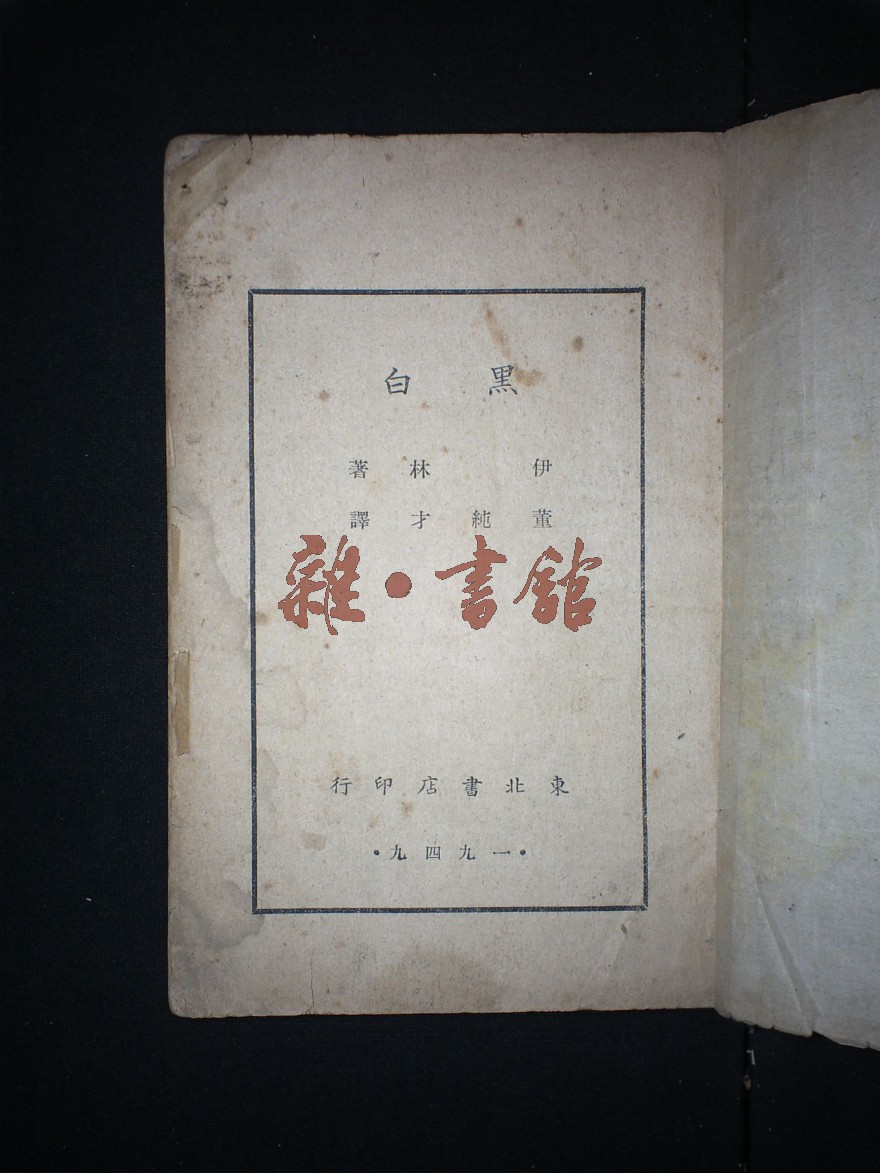 黑白
伊林著
董純才譯
雜·書館
東北書店印行
·一九四九·